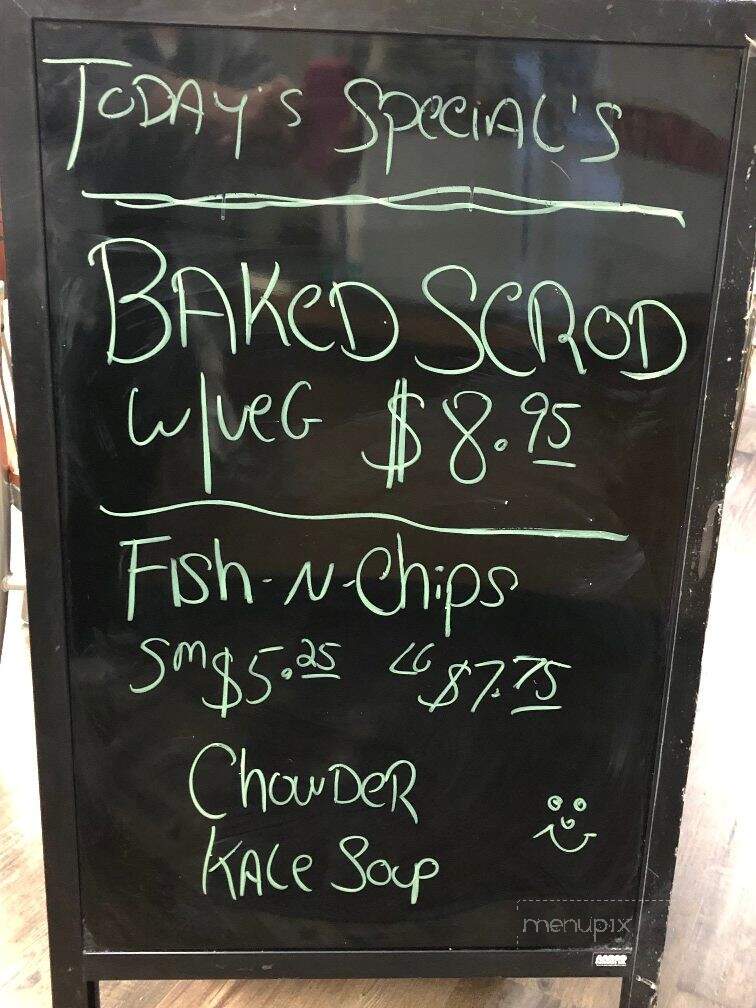 TODAY'S SPECIAL'S
BAKED SCROD
W/VEG $8.95
FISh-N-Chips
SM $5.25 LG $7.75
ChowDER
KALE Soup
menupix